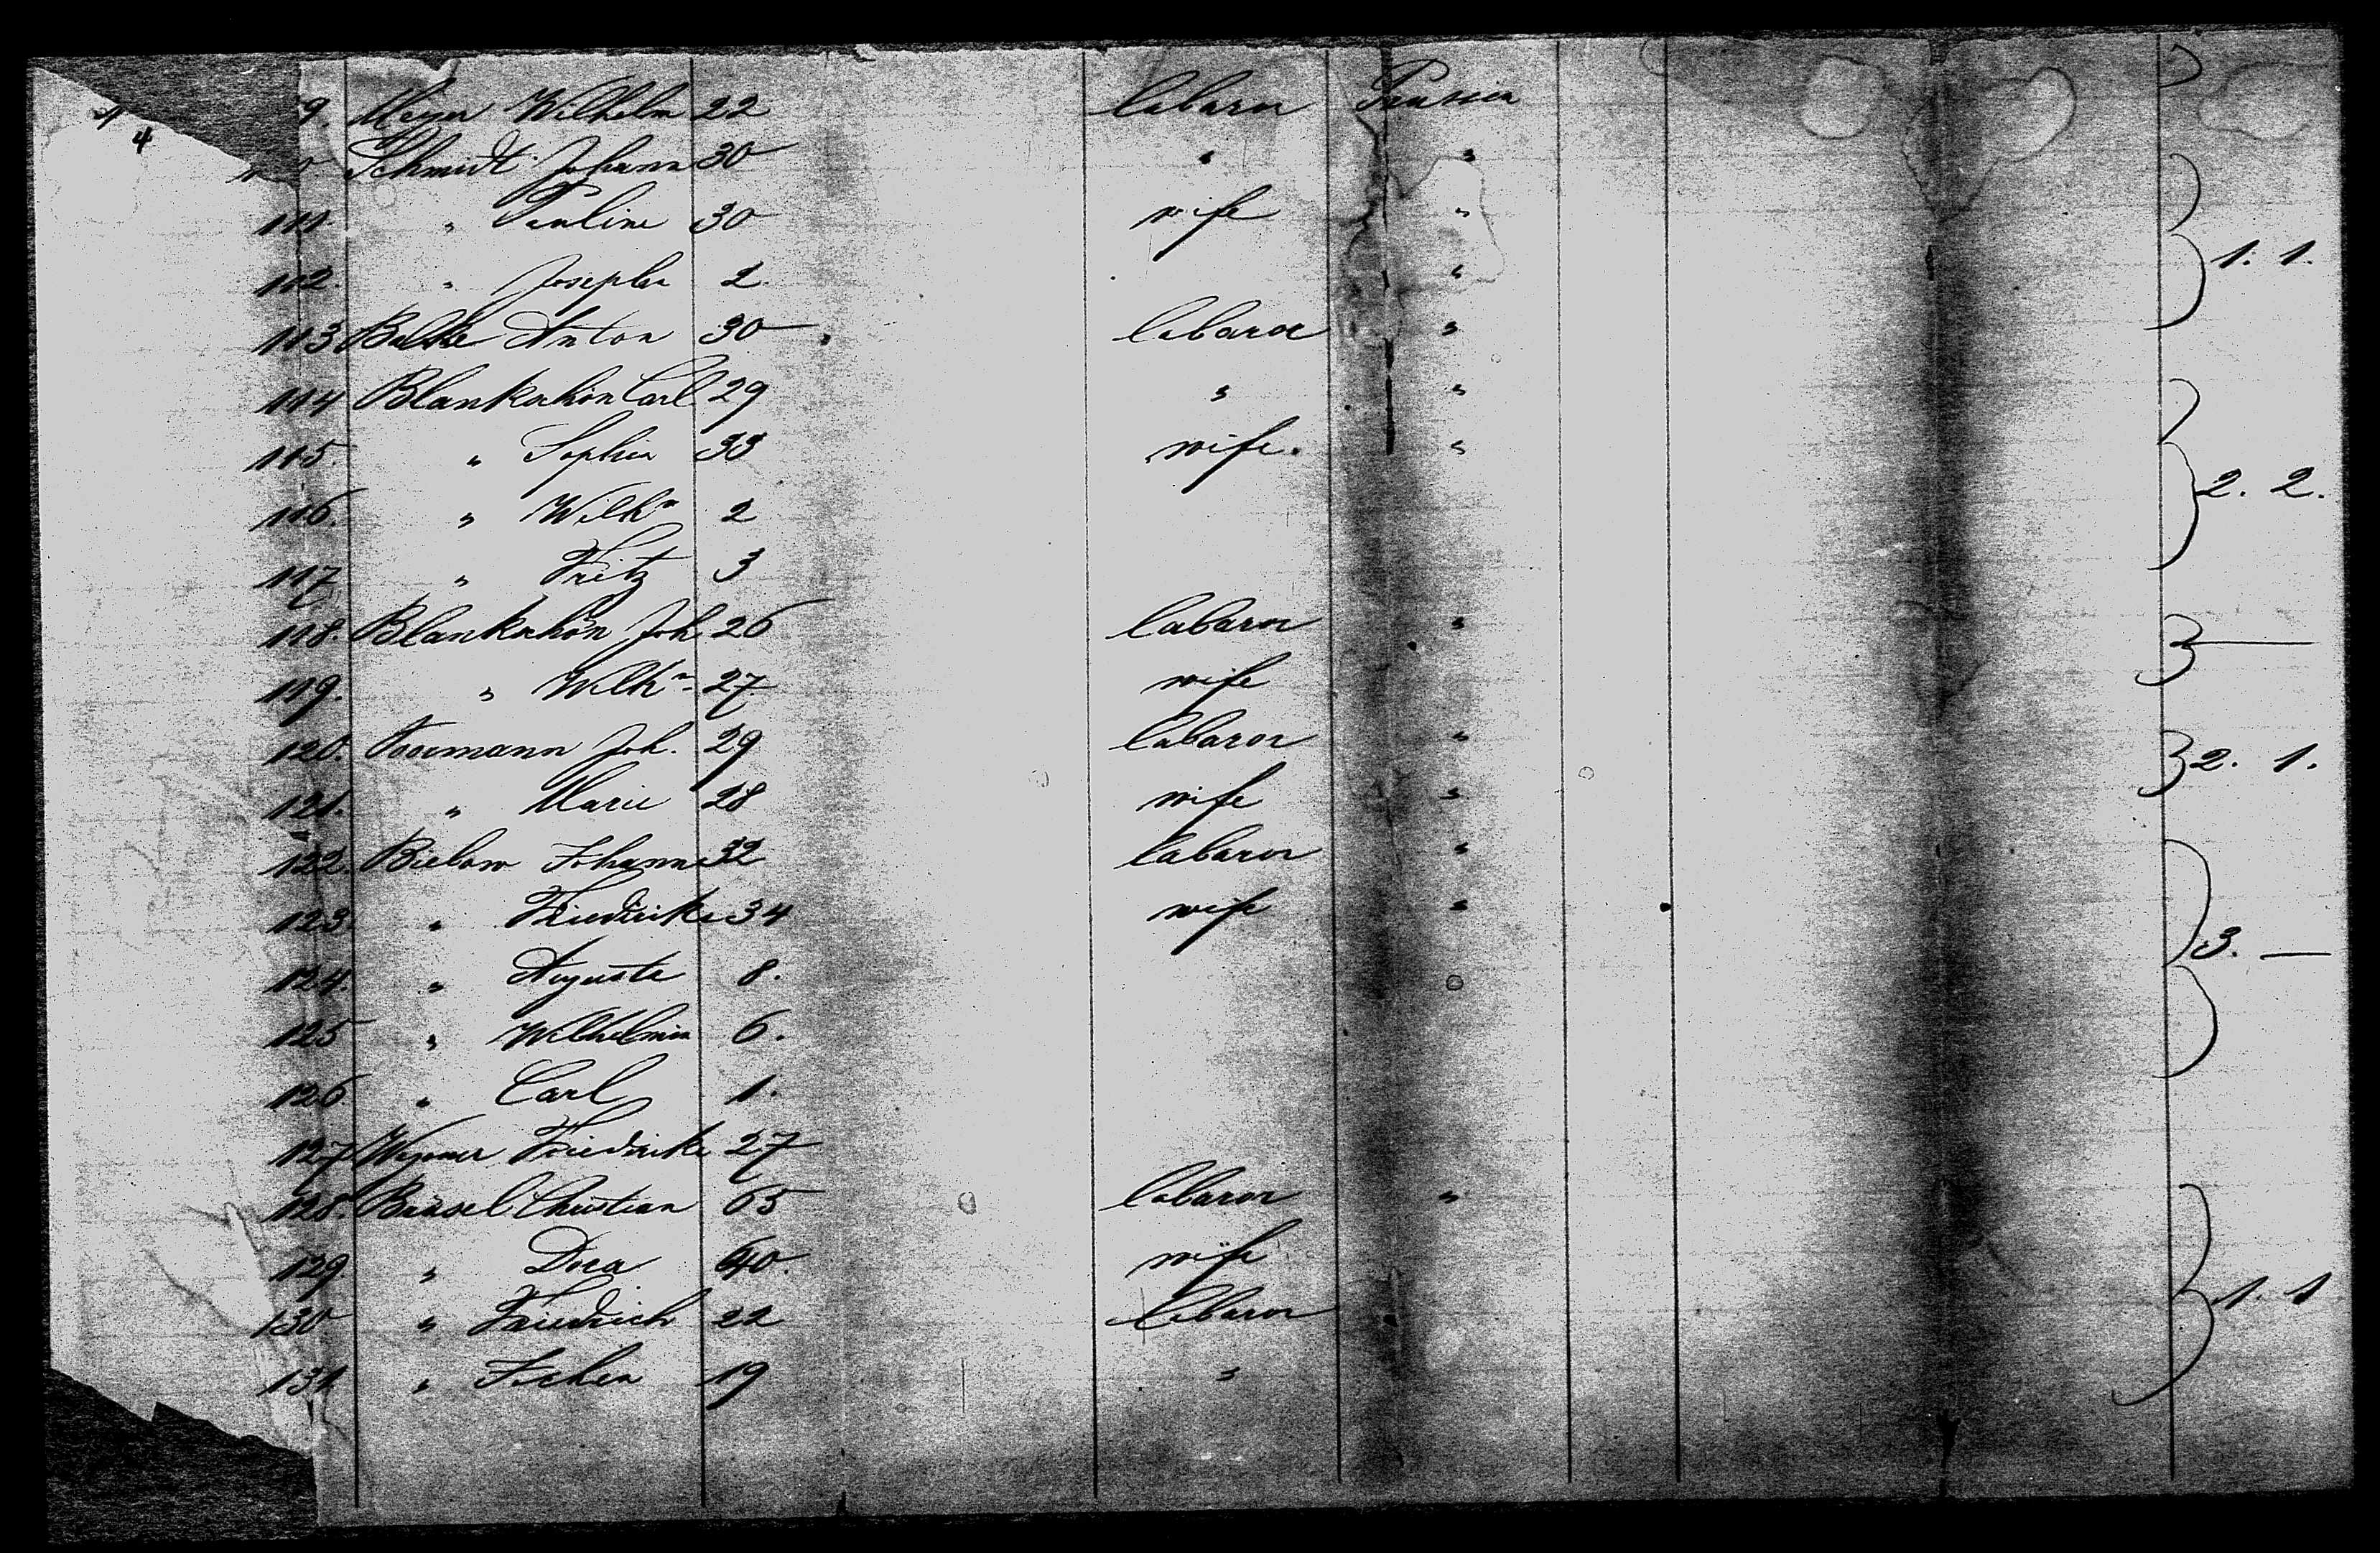 9. Meyer Wilhelm 22 labaror Prussia
4
Schmidt Johann 30 " "
111. " Pauline 30 wife "
112. " Josepha 2. "
1. 1.
113 Anton 30 labaror "
114 Carl 29 " "
115. " Sophia 33 wife. "
116. " Wilhⁿ 2
2. 2.
117 " Fritz 3
118. Joh 26 labaror "
—
119. " Wilhⁿ 27 wife
120. Joh. 29 labaror "
2. 1.
121. " Marie 28 wife "
122. Bielow Johann 32 labaror "
123. " Friedricke 34 wife "
3. —
124. " Auguste 8.
125 " Wilhelmin 6.
126 " Carl 1.
127 Friedericke 27
128. Christian 65 labaror "
129. " Dora 40. wife
1. 1
130 " Friedrich 22 labaror
131 " 19 "